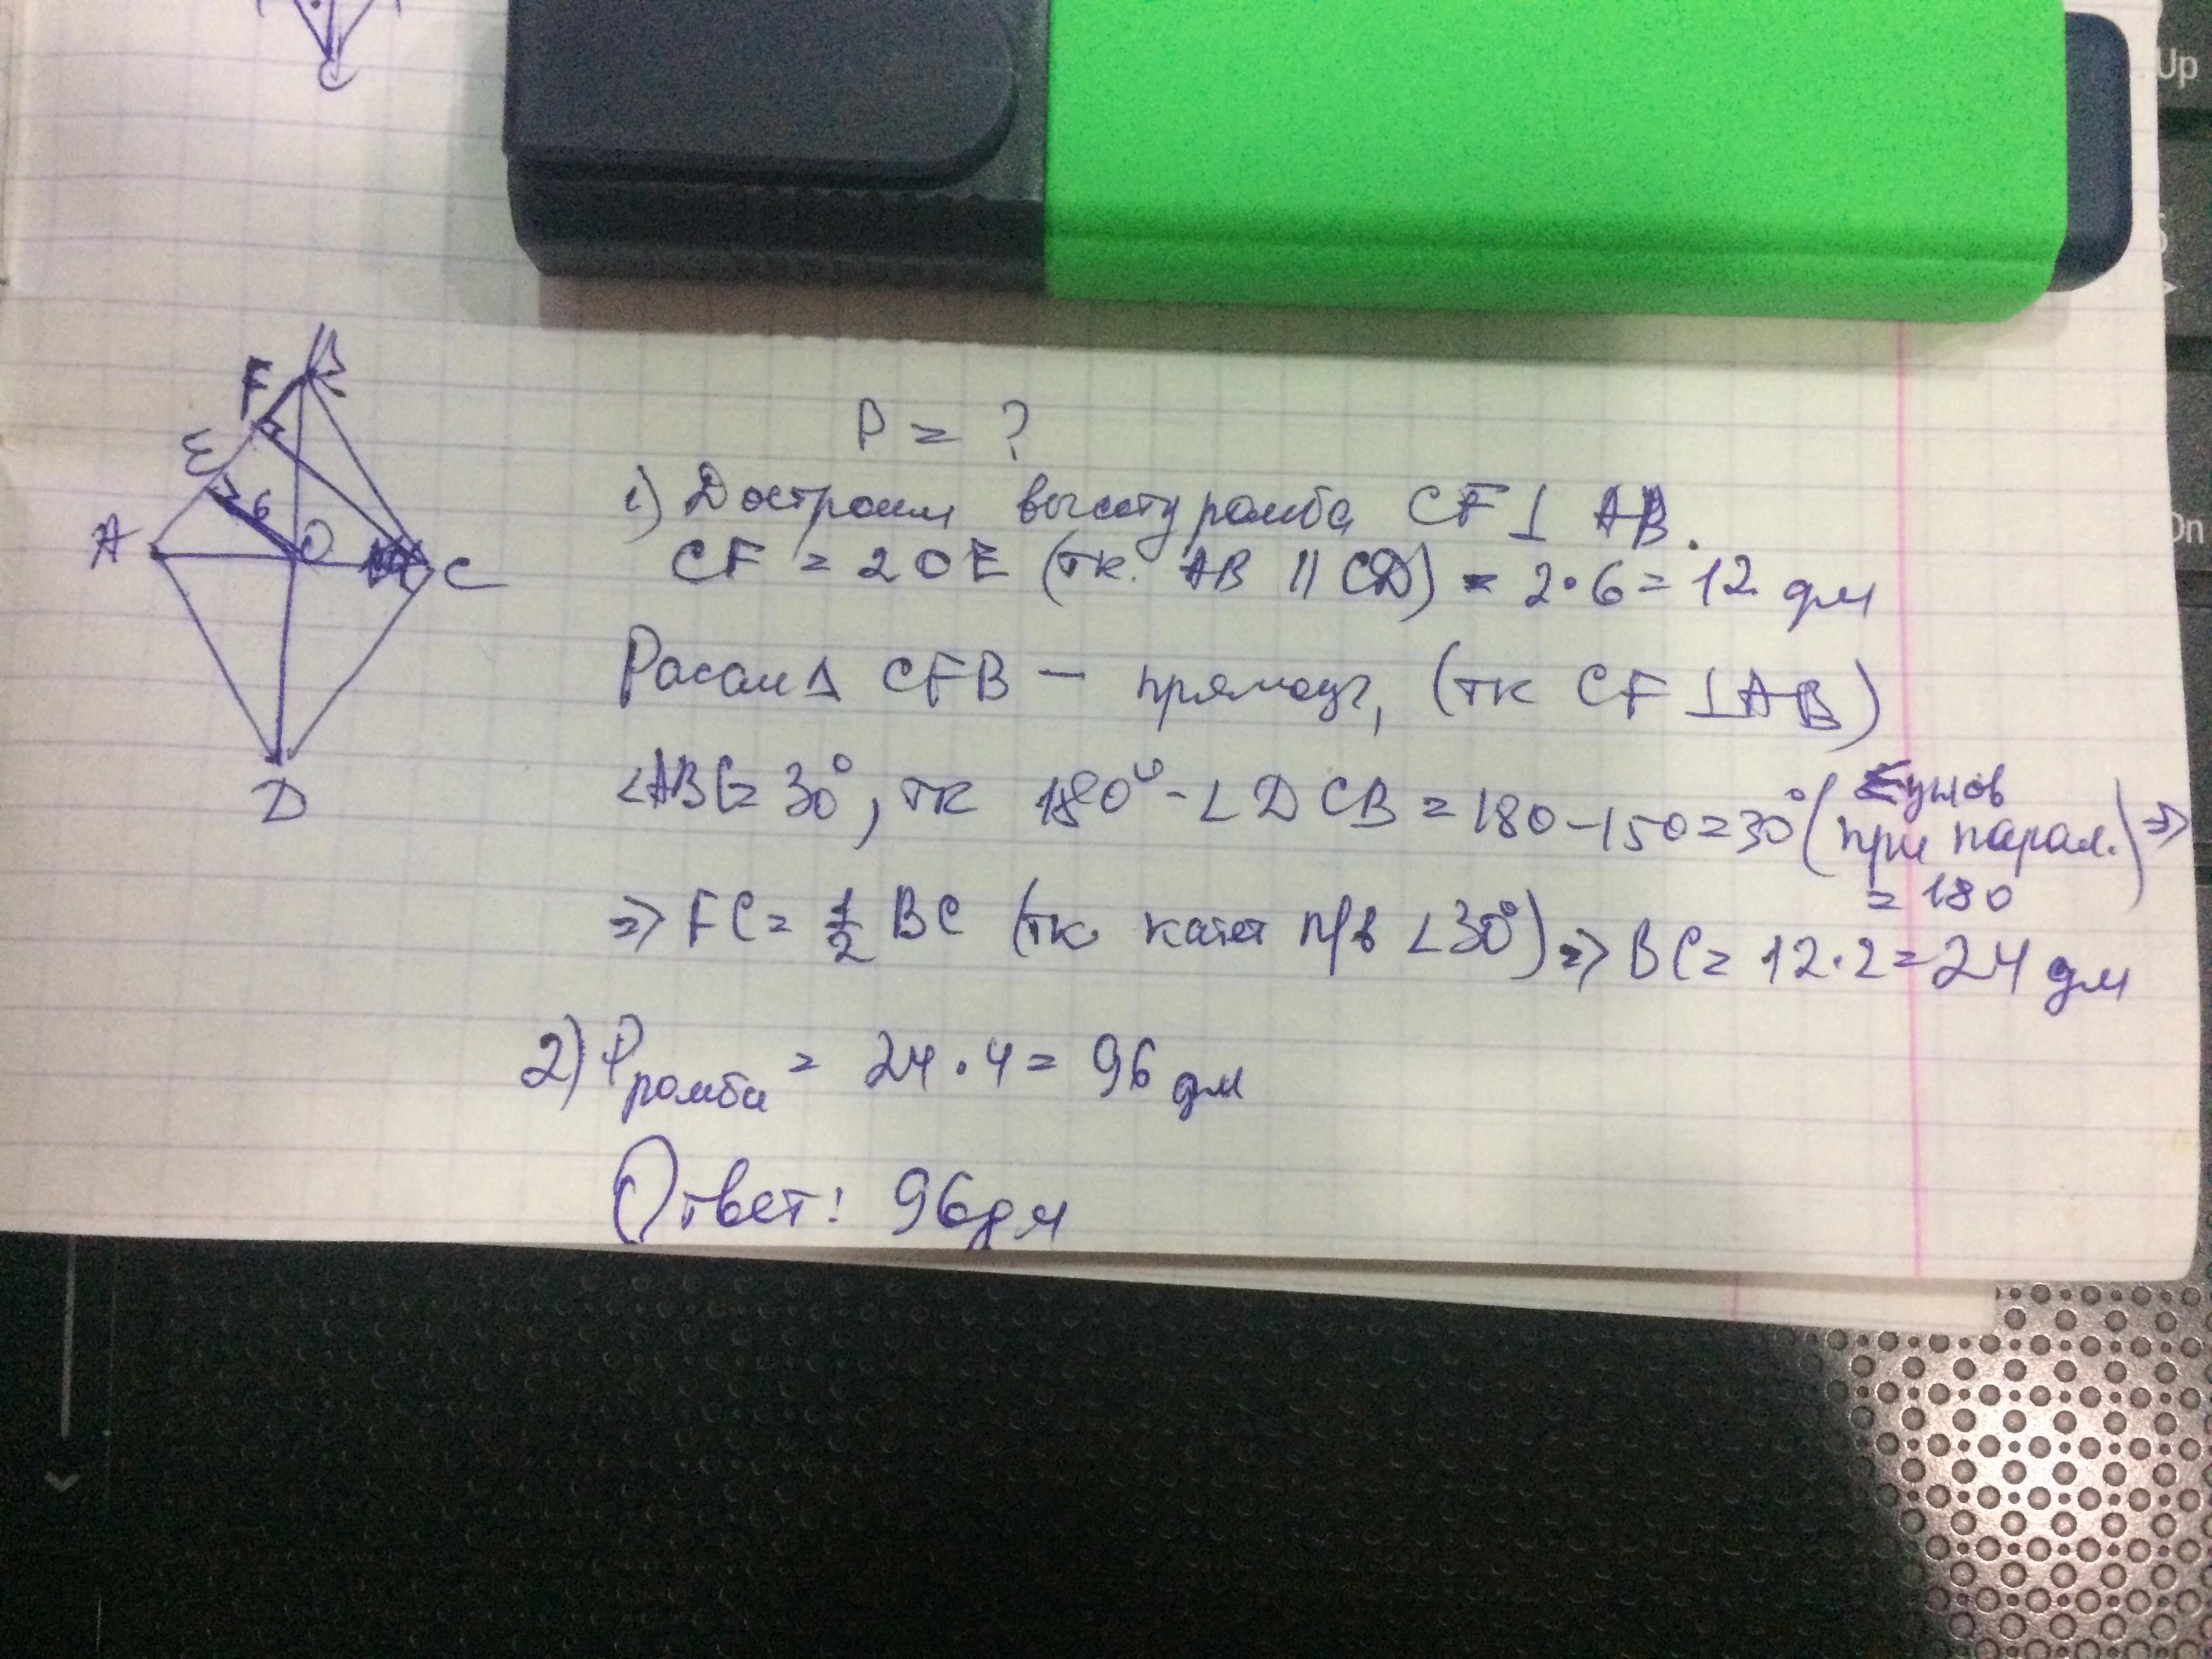 C
F
B
E
6
A
O
C
D
P = ?
1) Достроим высоту ромба CF ⊥ AB.
CF = 2OE (тк. AB || CD) = 2·6 = 12 дм
Рассм Δ CFB – прямоуг, (тк CF ⊥ AB)
∠ABC = 30°, тк 180° - ∠DCB = 180 - 150 = 30° (Σ углов при парал. = 180) ⇒
⇒ FC = 1/2 BC (тк катет п/в ∠30°) ⇒ BC = 12·2 = 24 дм
2) P ромба = 24·4 = 96 дм
Ответ: 96дм
Up
5
On